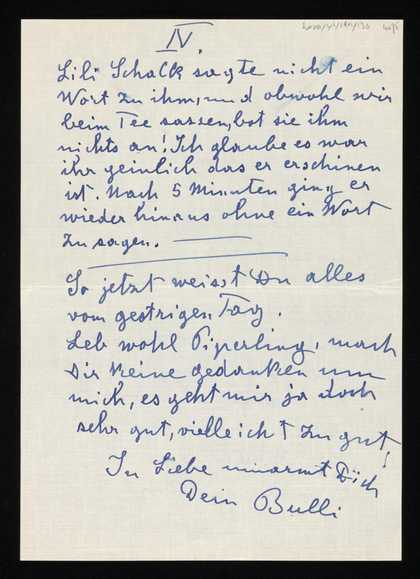 IV.
Lili Schalk sagte nicht ein
Wort zu ihm, und obwohl wir
beim Tee sassen, bot sie ihm
nichts an! Ich glaube es war
ihr peinlich das er erschinen
ist. Nach 5 Minuten ging er
wieder hinaus ohne ein Wort
zu sagen.
So jetzt weisst Du alles
vom gestrigen Tag.
Leb wohl Piperling, mach
Dir keine gedanken um
mich, es geht mir ja doch
sehr gut, vielleicht zu gut!
In Liebe umarmt Dich
Dein Bulli